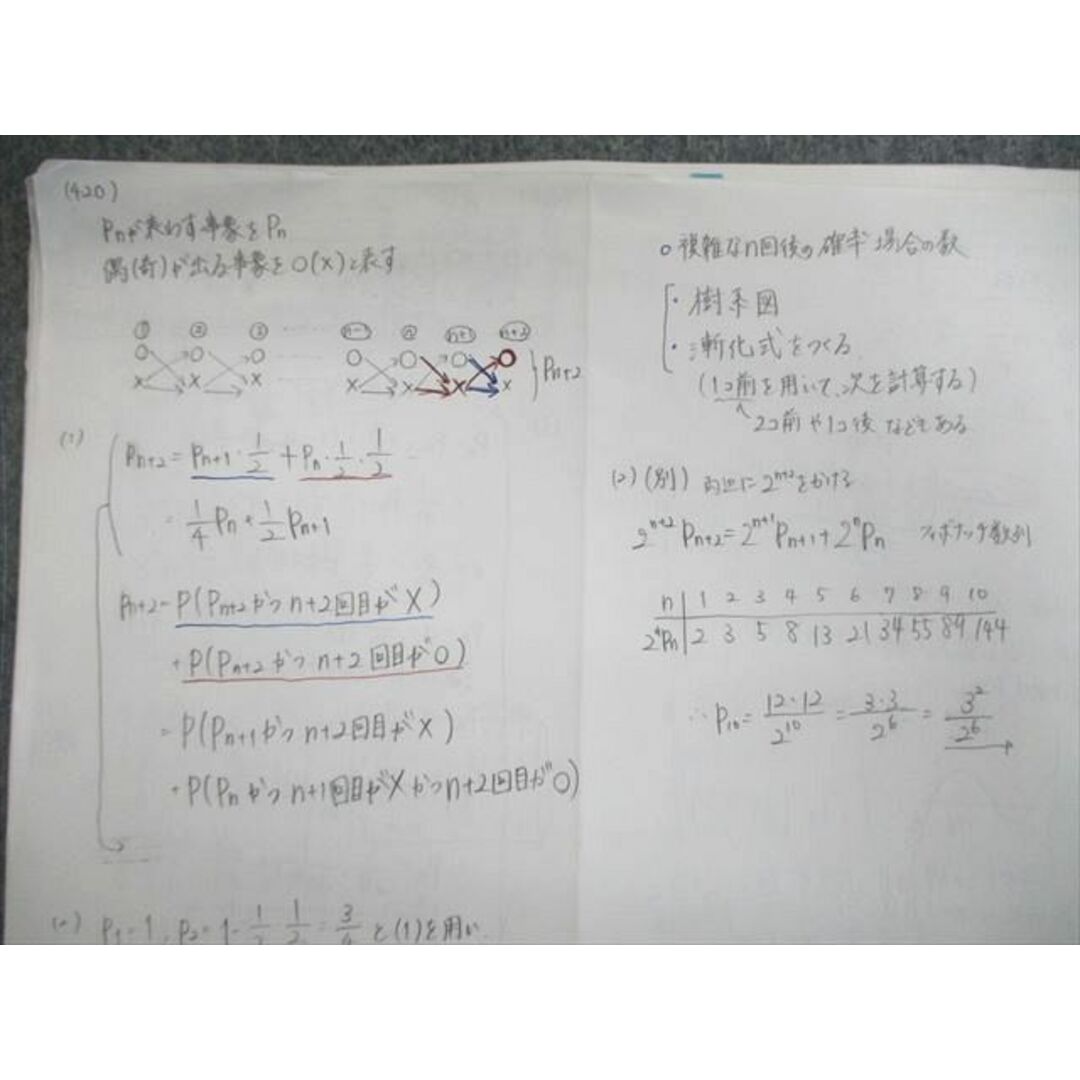 (420)
Pnが表わす事象をPn
偶(奇)が出る事象を○(×)と表す
① ② ③ ...... n-1 n n+1 n+2
○ ○ ○ ○ ○ ○ ○
× × × × × × ×
} Pn+2
(1)
Pn+2 = Pn+1・1/2 + Pn・1/2・1/2
= 1/4 Pn + 1/2 Pn+1
Pn+2 = P(Pn+2かつn+2回目が×)
+ P(Pn+2かつn+2回目が○)
= P(Pn+1かつn+2回目が×)
+ P(Pnかつn+1回目が×かつn+2回目が○)
(2) P1=1, P2=1-1/2・1/2=3/4と(1)を用い
○複雑なn回後の確率・場合の数
・樹系図
・漸化式をつくる
(1コ前を用いて、次を計算する)
2コ前や1コ後などもある
(2)(別) 両辺に2^{n+2}をかける
2^{n+2}Pn+2=2^{n+1}Pn+1+2^nPn フィボナッチ数列
n | 1 2 3 4 5 6 7 8 9 10
2^nPn | 2 3 5 8 13 21 34 55 89 144
∴ P10 = 12・12/2^10 = 3・3/2^6 = 3^2/2^6